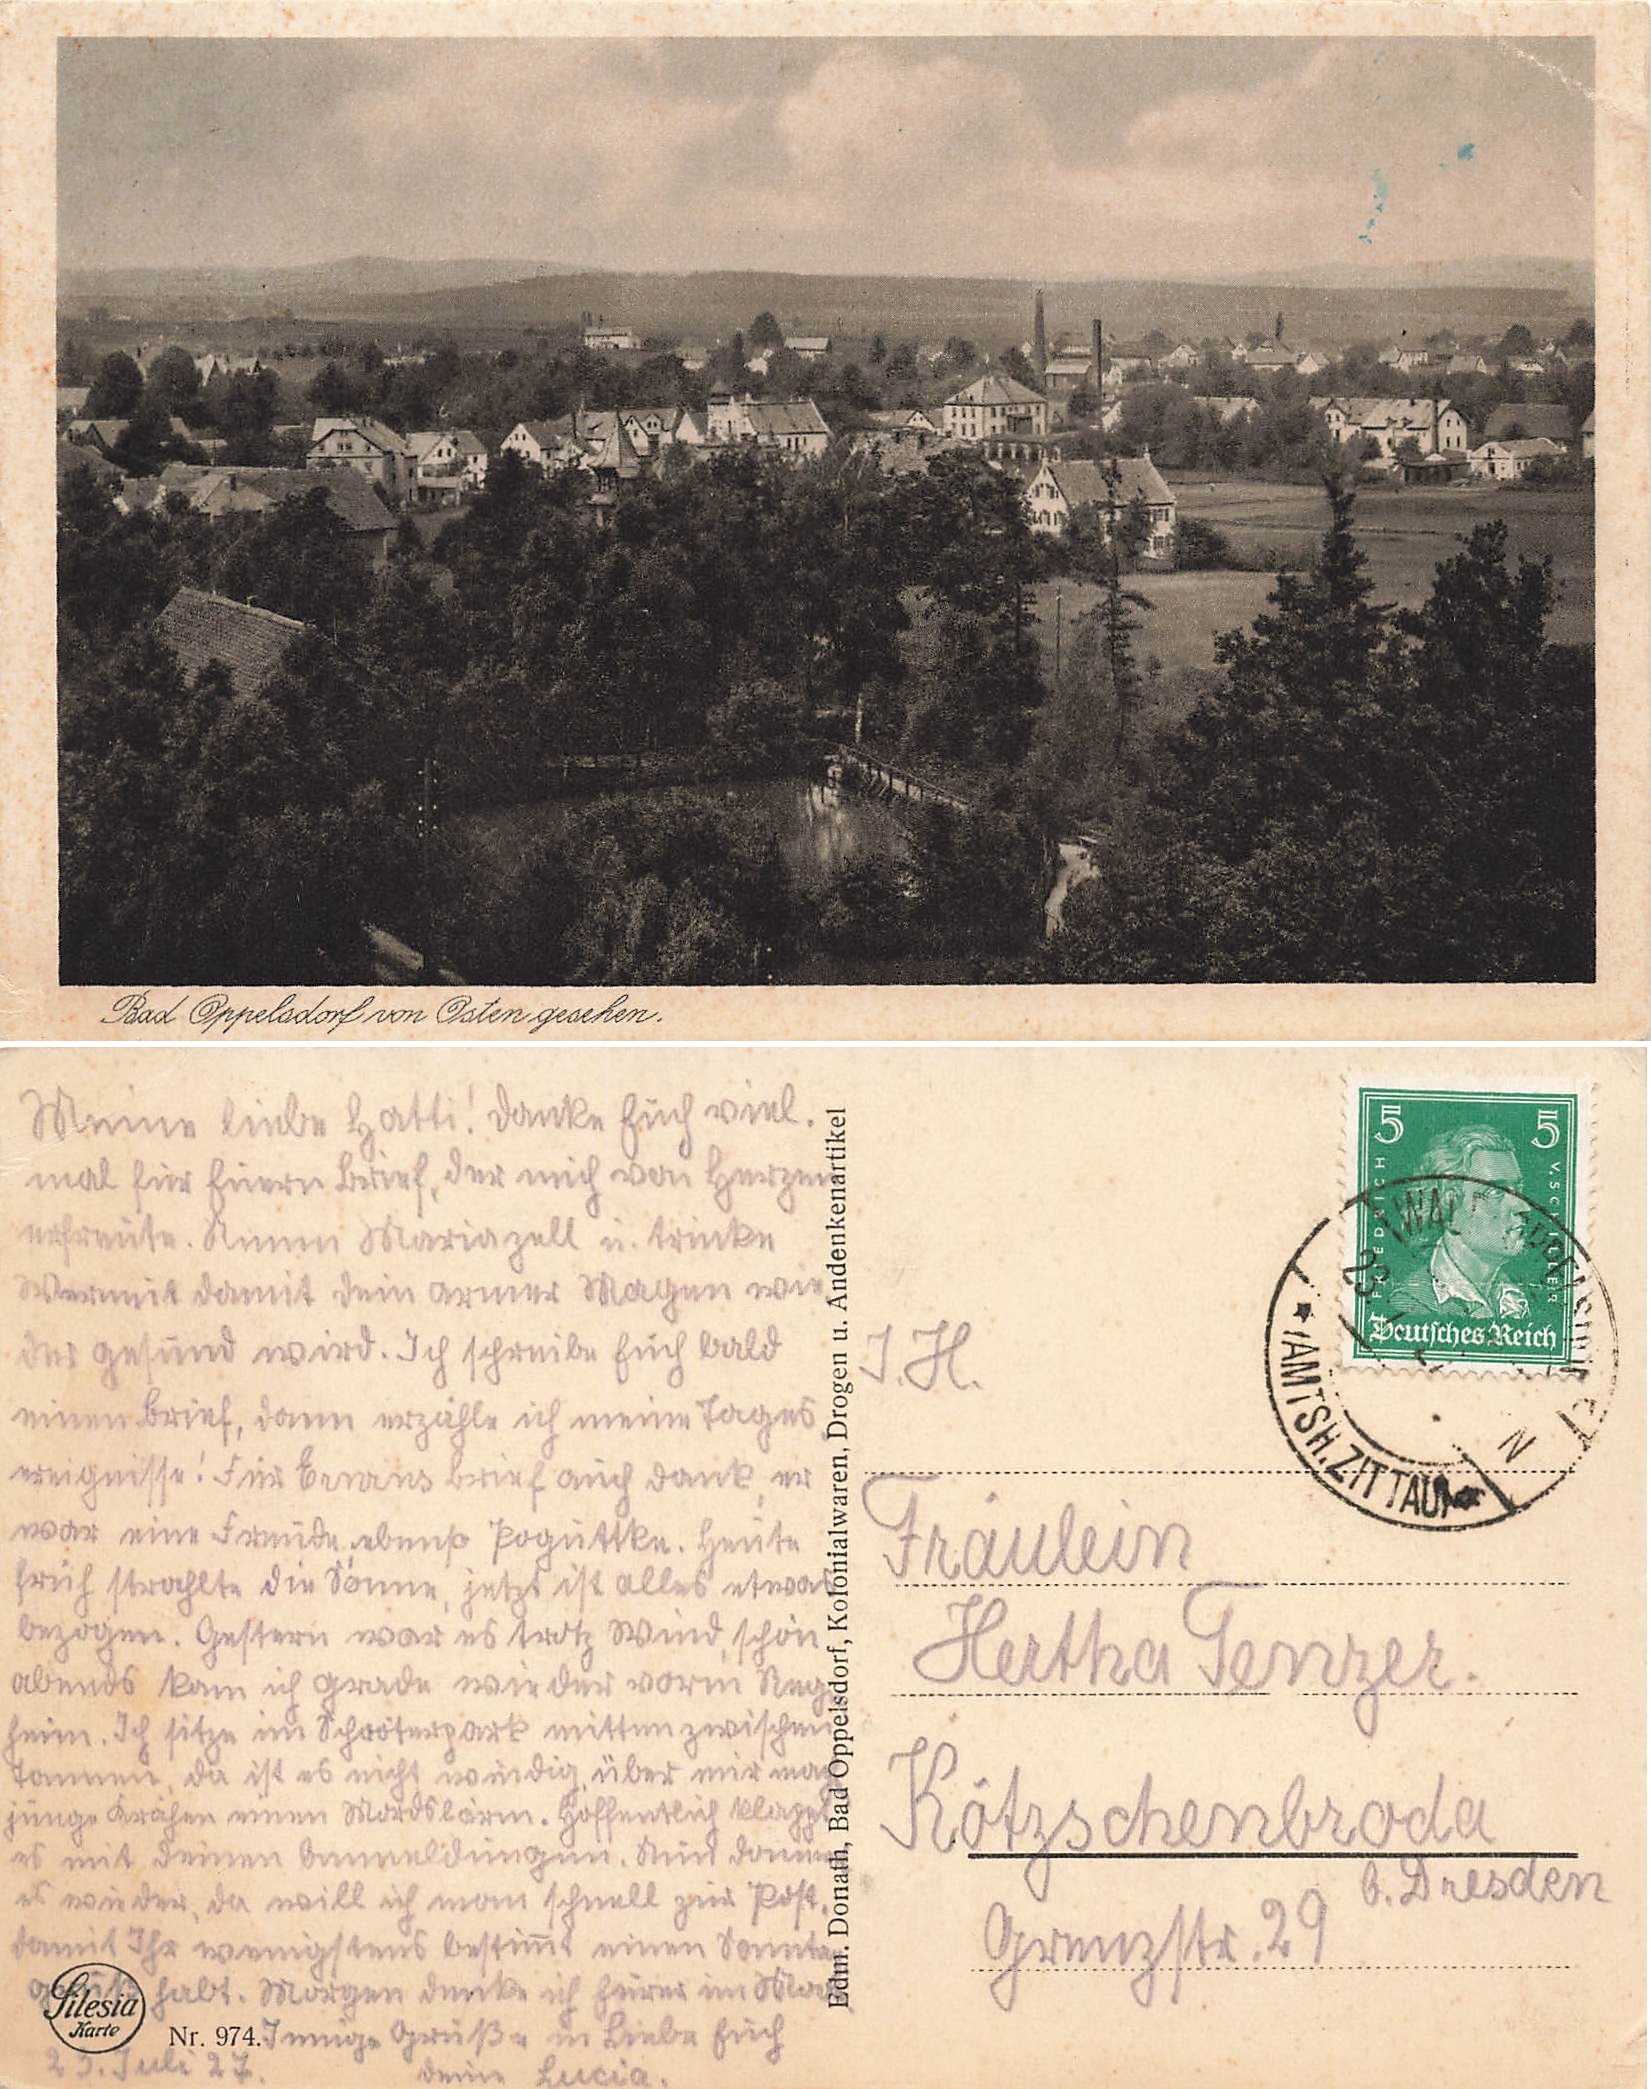 Bad Oppelsdorf von Osten gesehen.
Meine liebe Hatti! Danke Euch viel.
mal für Euern Brief, der mich von Herzen
erfreute. Nimm Mariazell u. trinke
Wermut damit dein armer Magen wie
der gesund wird. Ich schreibe Euch bald
einen Brief, dann erzähle ich meine Tages
ereignisse! Für Brief auch Dank, er
war eine Freude, ebenso Poguttke. Heute
früh strahlte die Sonne, jetzt ist alles etwas
bezogen. Gestern war es trotz Wind schön
abends kam ich grade wieder vorm Reg
heim. Ich sitze im Schröterpark mitten zwischen
Tannen, da ist es nicht windig, über mir mach
junge Krähen einen Mordslärm. Hoffentlich klappt
es mit deinen Anmeldungen. Nun
es wieder, da will ich man schnell zur Post,
damit Ihr wenigstens bestimmt einen Sonnta
gruß habt. Morgen denke ich Eurer im
Innige Grüße in Liebe Euch
23. Juli 27. deine Lucia.
Silesia
Karte
Nr. 974.
Edm. Donath, Bad Oppelsdorf, Kolonialwaren, Drogen u. Andenkenartikel
5 5
FRIEDRICH V. SCHILLER
Deutsches Reich
23
(AMTSH. ZITTAU)
I. H.
Fräulein
Hertha Tenzer.
Kötzschenbroda
b. Dresden
Grenzstr. 29